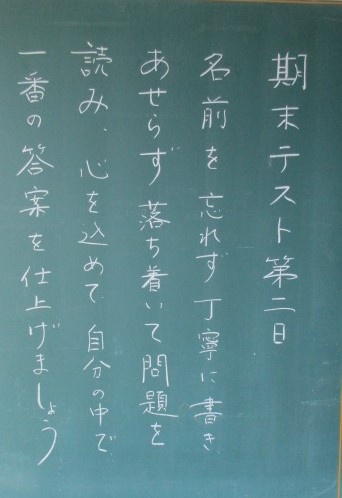 期末テスト第二日
名前を忘れず丁寧に書き
あせらず落ち着いて問題を
読み、心を込めて自分の中で
一番の答案を仕上げましょう